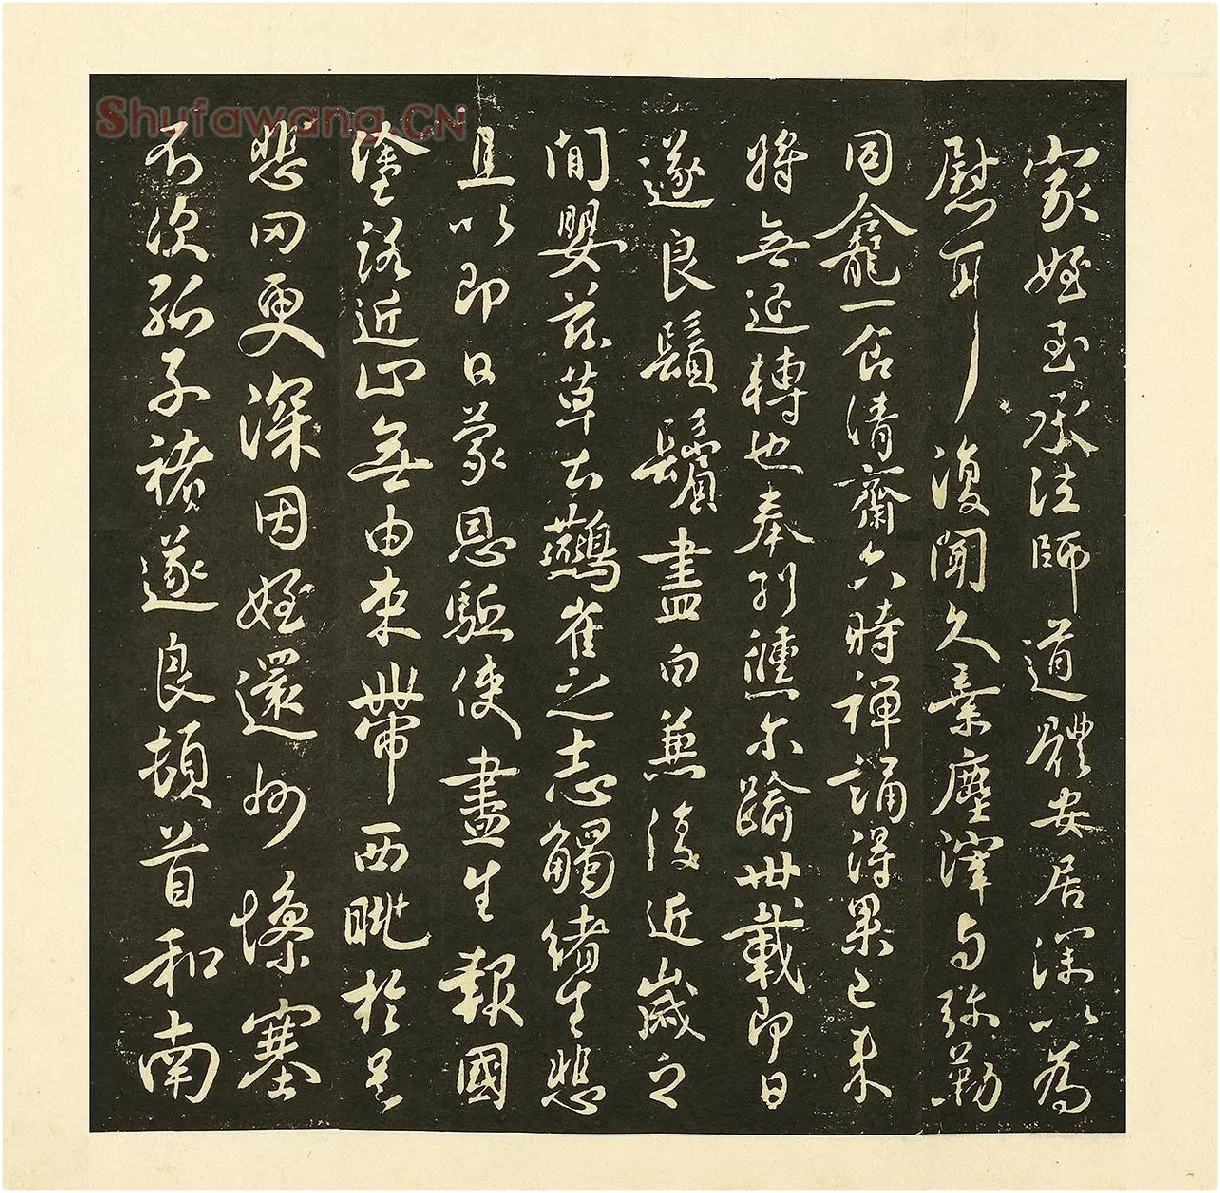 Shufawang.CN
家姪至承法師道體安居深以為
慰耳復聞久棄塵滓与弥勒
同龕一食清齋六時禪誦得果已来
將無退轉也奉別倐尓踰卅載即日
遂良鬚鬢盡白兼復近歲之
間嬰茲草土鷰雀之志觸緒生悲
且以即日蒙恩驅使盡生報國
塗路近止無由来卅帶西眺於是
悲罔更深因姪還州慘塞
不次孤子褚遂良頓首和南